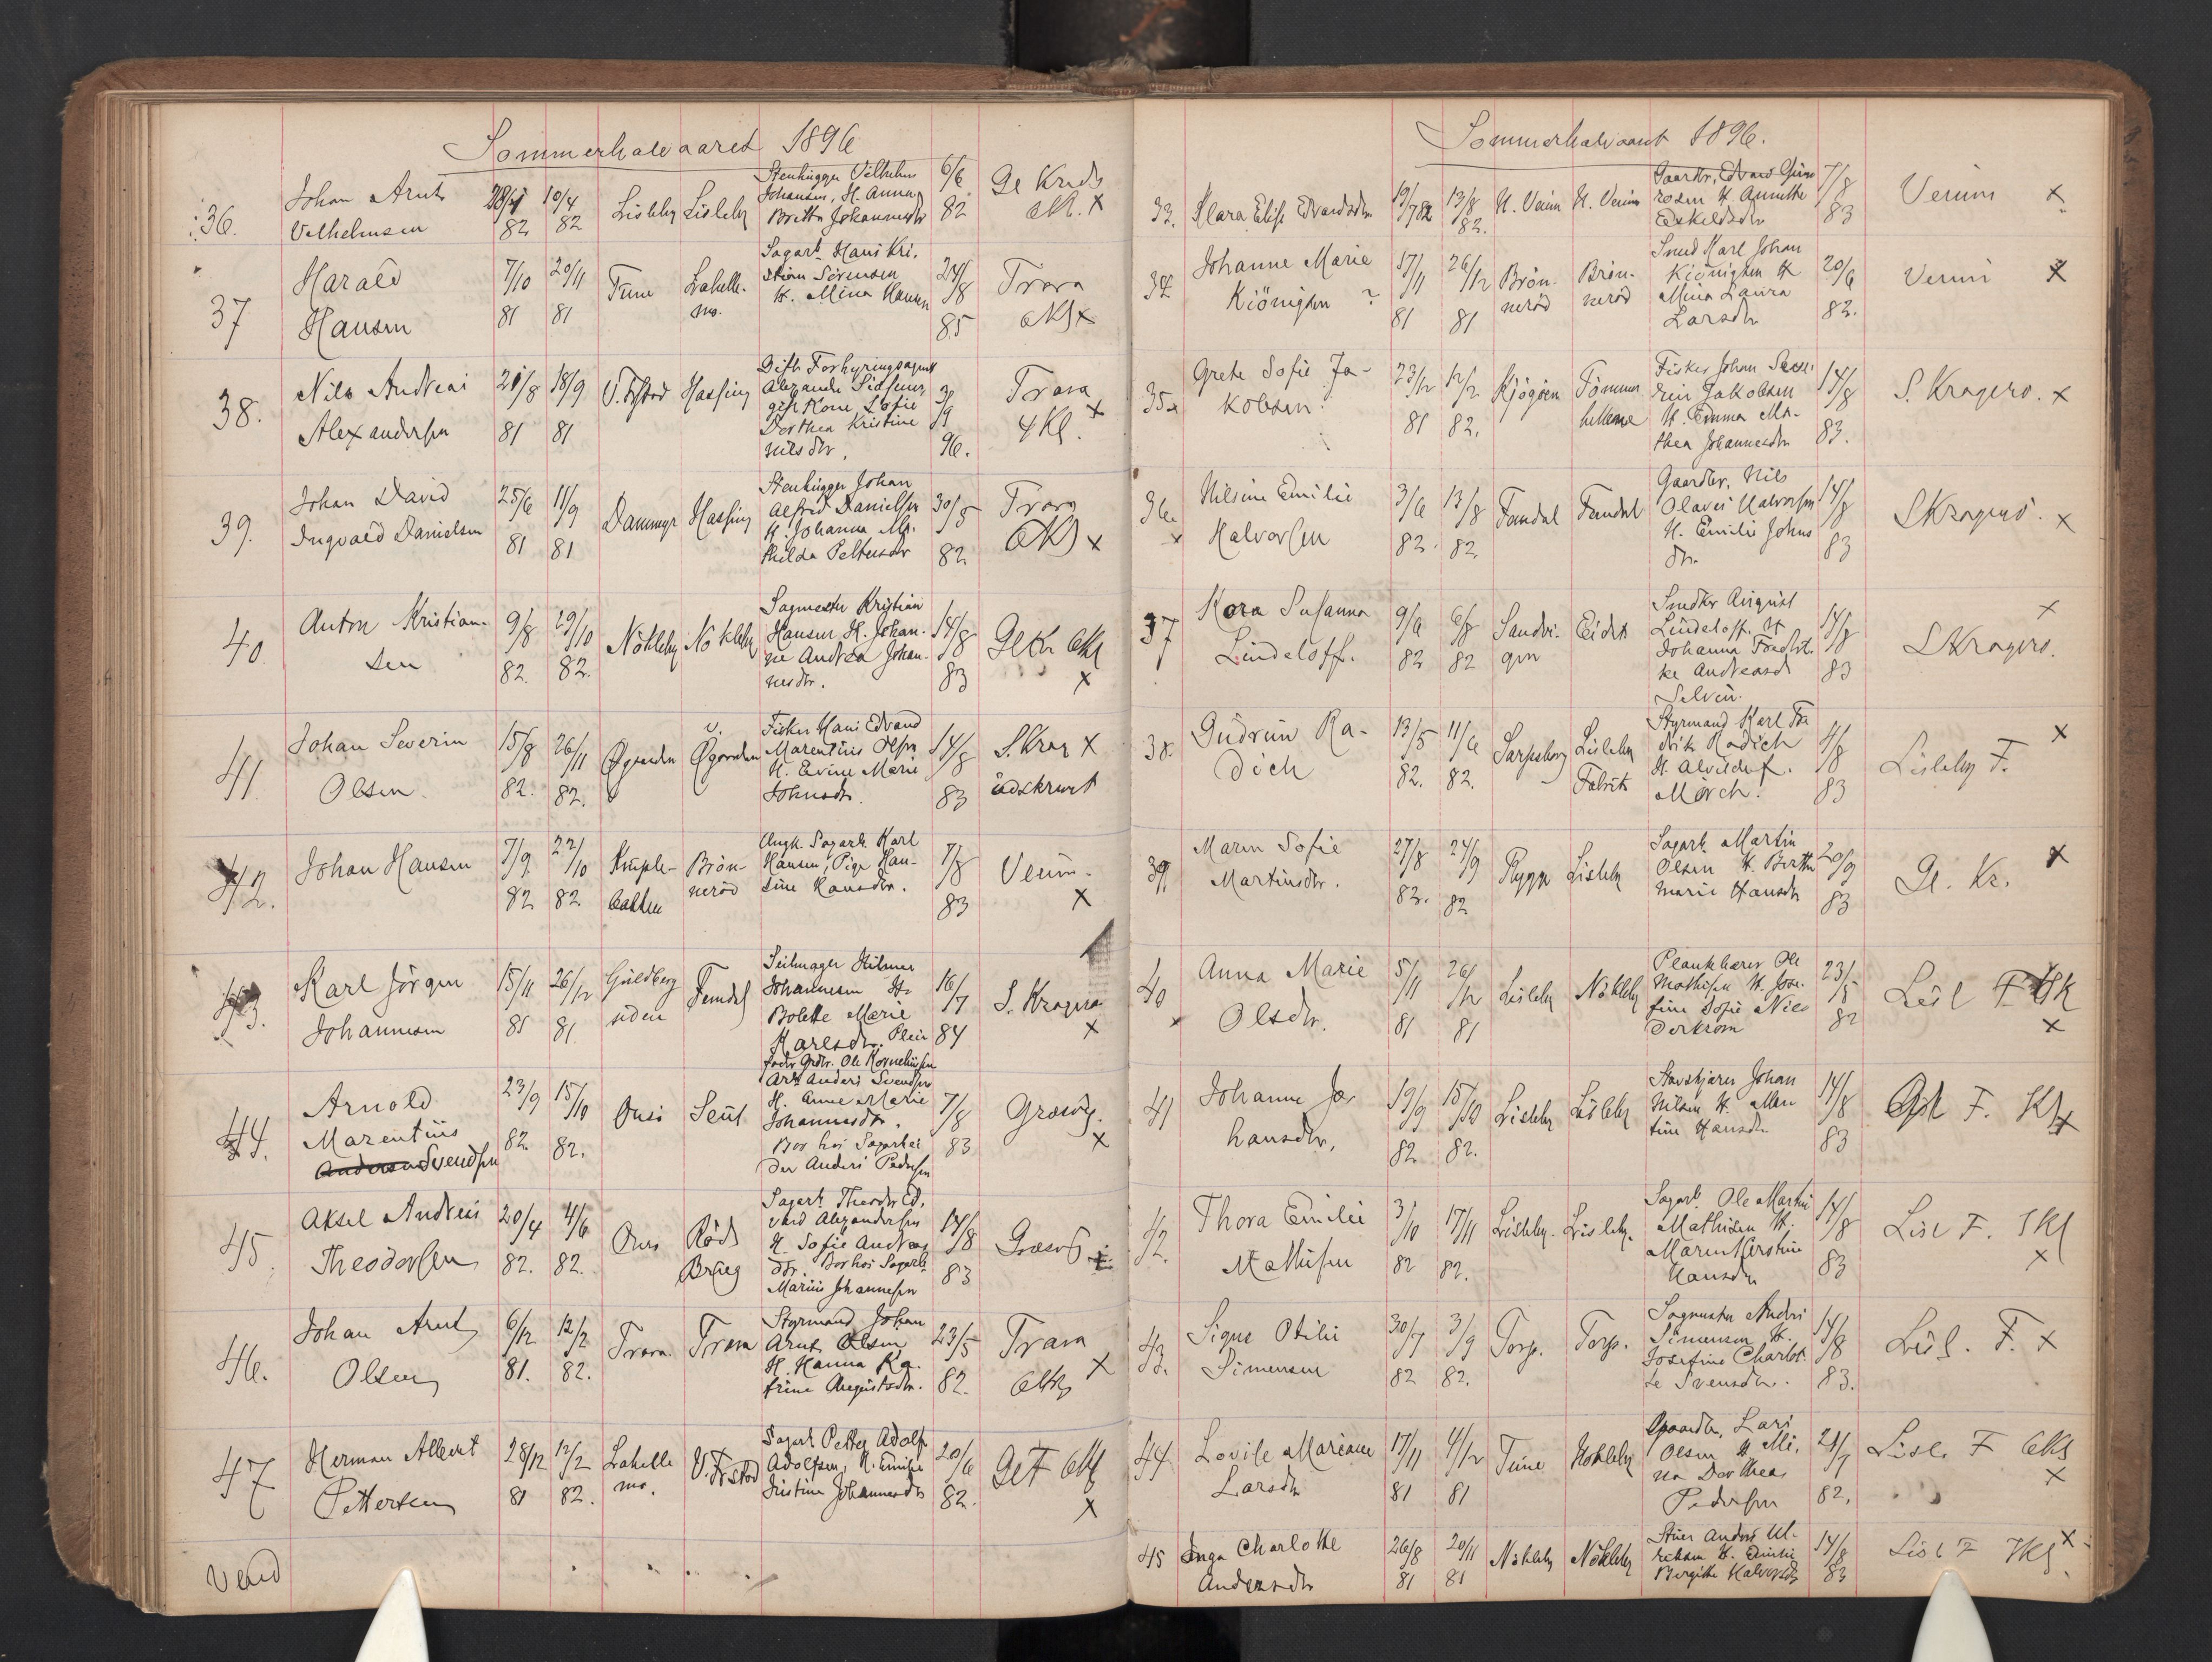 Sommerhalvaaret 1896
36. Johan Arnt Vilhelmsen 82 10/4 82 Lisleby Lisleby Stenhugger Vilhelm Johansen, H. Anna Britta Johannesdr 6/6 82 Gl Kreds x
37 Harald Hansen 7/10 81 20/11 81 Tune Lahelle- mo. Sagarb. Hans Kri- stian Sörensen H. Mina Hansen 24/8 85 Trara x
38. Nils Andreas Alexandersen 21/8 81 18/9 81 V. Fr.stad Hassing Gift Forhyringsagent gift Kone Sofie Dorthea Kristine Nilsdtr. 96. Trara 4 Kl. x
39. Johan David Ingvald Danielsen 25/6 81 11/9 81 Dammyr Hassing Stenhugger Johan Alfred Danielsen H. Johanna Ma- thilda Pettersdtr 30/5 82 Trara x
40 Anton Kristian- sen 9/8 82. 29/10 82. Nökleby Nökleby Sagmester Kristian Hansen H. Johan- ne Andrea Johan- nesdtr. 14/8 83 Gl Kr x
41 Johan Severin Olsen. 15/8 82. 26/11 82. Øgaarden V. Øgaarden Fisker Hans Edvard Marentius Olsen H. Marie Johnsdtr. 14/8 83 S. Krag x udskrevet
42. Johan Hansen 7/9 82 22/10 82 Kniple- bakken Brön- neröd Ungk. Sagarb. Karl Hansen, Pige Han- sine Hansdtr. 7/8 83 Veum. x
43. Karl Jörgen Johannesen 15/11 81 26/12 81 Guldberg siden Femdal Seilmager Hilmar Johannesen H. Bolette Marie Karlsdtr. Pleie fader Grdbr. Ole Kornelius​en 16/7 84 S. Kragerø x
44. Arnold Marentius Andersen Svendsen 23/9 82. 15/10 82. Onsö Seut Arb Anders Svendsen H. Anne Marie Johannesdtr. Bor hos Sagarbei der Anders Pedersen 7/8 83 Græsvig. x
45. Aksel Andreas Theodorsen 20/4 82. 4/6 82. Onsö Röds Brug Sagarb. Theodor Ed. vard Alexandersen H. Sofie Andreas dtr. Bor hos Sagarb. Marius Johannesen 14/8 83 Græsv x
46. Johan Arnt Olsen 6/12 81. 12/2 82. Trara. Trara Styrmand Johan Arnt Olsen H. Hanna Ka- trine Augustsdtr. 23/5 82. Trara x
47 Herman Albert Pettersen 28/12 81 12/2 82. Lahelle mo. V. Fr.stad Sagarb. Petter Adolf Adolfsen, H. Emilie Justine Johannesdtr 20/6 82. Gl F x
Vend
Sommerhalvaaret 1896.
33. Klara Elise Edvardsdtr 19/7 82 13/8 82. N. Veum N. Veum Gaardbr. Edvard H. Annette Eskildsdtr 7/8 83 Veum x
34 Johanne Marie Kiönigsen ? 17/11 81 26/12 81 Brön- neröd Brön- neröd Smed Karl Johan Kiönigsen H Mina Laura Larsdtr 20/6 82. Veum x
35 x Grete Sofie Ja- kobsen. 23/12 81 12/2 82. Kjögöen Tömmer hellene Fisker Johan Seve- rin Jakobsen H. Emma Ma- thea Johannesdtr 14/8 83. S. Kragerö. x
36. x Nilsine Emilie Halvorsen 3/6 82. 13/8 82 Femdal Femdal Gaardbr. Nils Olaves Halvorsen H. Emilie Johns dtr. 14/8 83 S Kragerö. x
37 Kora Susanna Lindeloff. 9/6 82 6/8 82 Sandvi- gen Eidet Smedkr August Lindeloff. H Johanna Fredrik- ke Andreasd Selven. 14/8 83 S Kragerö. x
38. Gudrun Ra- dich 13/5 82. 11/6 82. Sarpsborg Lisleby Fabrik Styrmand Karl Fre drik Radich H. Alvilde f. Mörch. 4/8 83 Lisleby F. x
39. Maren Sofie Martinsdtr. 27/8 82. 24/9 82 Rygge Lisleby Sagarb. Martin Olsen H. Berthe Marie Hansdtr 20/9 83 Gl. Kr. x
40 x Anna Marie Olsdtr. 5/11 81 26/12 81 Lisleby Nökleby Plankbærer Ole Mathisen H. Jose- fine Sofie Nico Derkrom 23/5 82 Lisl F. x
41 Johanne Jo- hansdtr. 19/9 82. 15/10 82. Lisleby Lisleby Stavskjærer Johan Nilsen H. Mar tine Hansdtr 14/8 83 F. Kl x
42. Thora Emilie Mathisen 3/10 82 17/11 82. Lisleby. Lisleby. Sagarb. Ole Martin Mathisen H. Maren Kirstine Hansdtr 14/8 83 Lisl F. x
43. Signe Otilie Simensen 30/7 82 3/9 82. Torp. Torp. Sagmester Anders Simensen H. Josefine Charlot- te Svensdtr. 14/8 83. Lisl. F. x
44 Lovise Mariane Larsdtr 17/11 81 4/12 81 Tune Nökleby Gaardbr. Lars Olsen H Mi- na Dorthea Pedersen 82. Lisl. F x
45 Inga Charlotte Andersdtr 26/8 81 20/11 81 Nökleby Nökleby Stuer Anders Ul- riksen H. Emilie Birgitte Halvorsdtr 14/8 83 Lisl F x